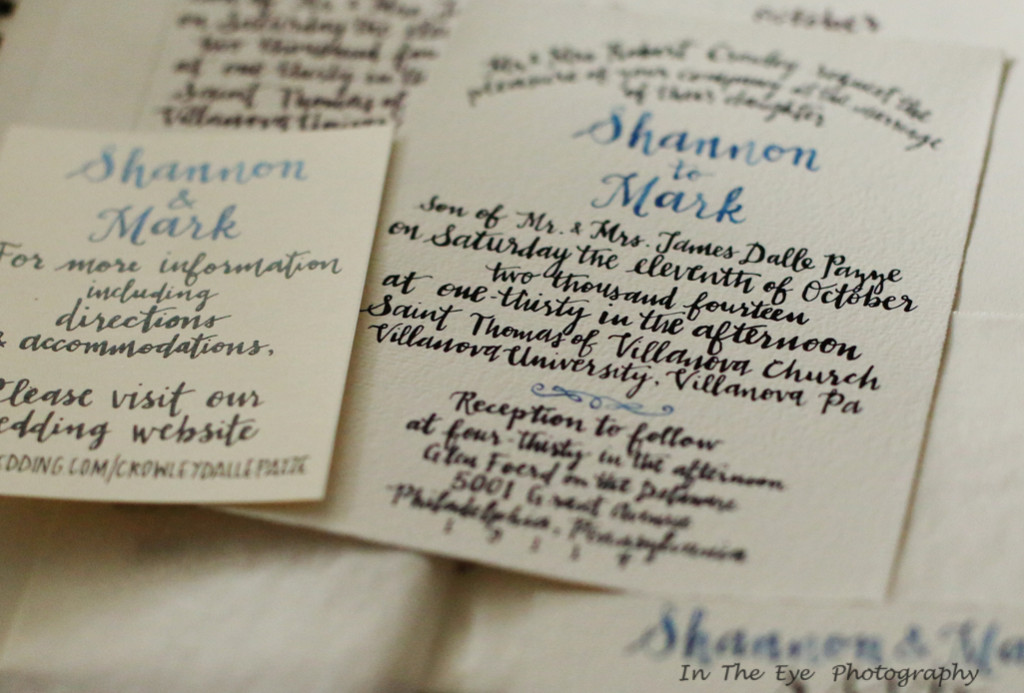 october
on Saturday the
two thousand fou
at one thirty in th
Saint Thomas of
Villanova Univer
Shannon
&
Mark
For more information
including
directions
& accommodations,
Please visit our
edding website
EDDING.COM/CROWLEYDALLEPAZZE
Mr & Mrs Robert Crowley request the
pleasure of your company at the marriage
of their daughter
Shannon
to
Mark
Son of Mr. & Mrs. James Dalle Pazze
on Saturday the eleventh of October
two thousand fourteen
at one-thirty in the afternoon
Saint Thomas of Villanova Church
Villanova University, Villanova Pa
Reception to follow
at four-thirty in the afternoon
Glen Foerd on the Delaware
5001 Grant Avenue
Philadelphia, Pennsylvania
Shannon & Ma
In The Eye Photography